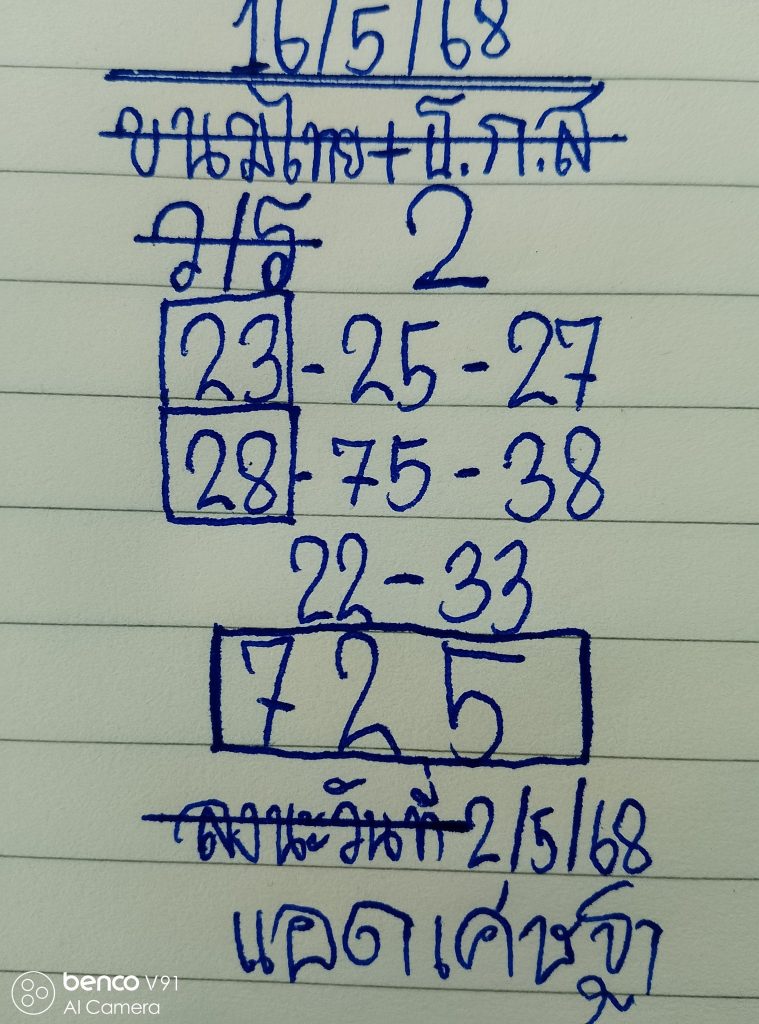 16/5/68
ขนมไทย+ธ.ก.ส
ว/ร 2
23-25-27
28-75-38
22-33
725
ลงนะวันที่ 2/5/68
แอดเศษฐา
benco V91
AI Camera